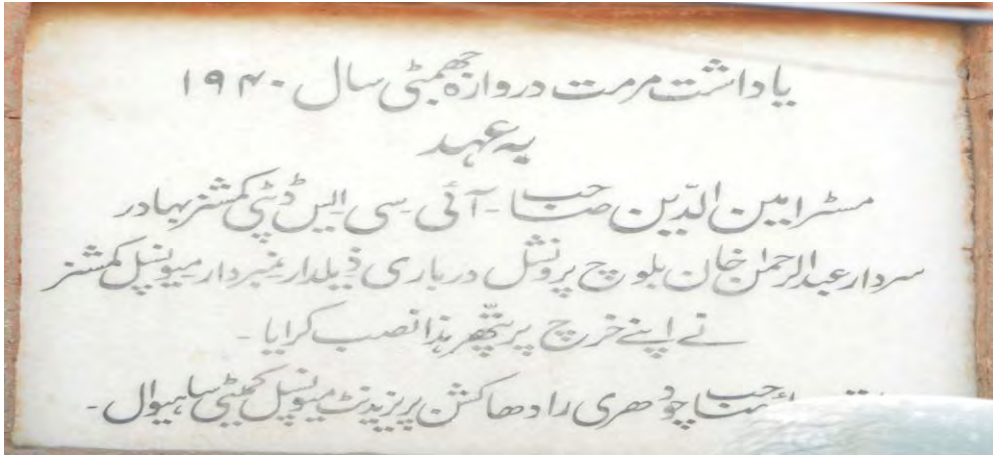 یاداشت مرمت دروازہ جھمٹی سال ۱۹۴۰
بہ عہد
مسٹر امین الدّین صاحب - آئی سی ایس ڈپٹی کمشنر بہادر
سردار عبدالرحمٰن خان بلوچ پرونشل درباری ذیلدار نمبردار میونسپل کمشنر
نے اپنے خرچ پر پتّھر ہٰذا نصب کرایا -
صاحب چودھری رادھا کشن پریزیڈنٹ میونسپل کمیٹی ساہیوال -